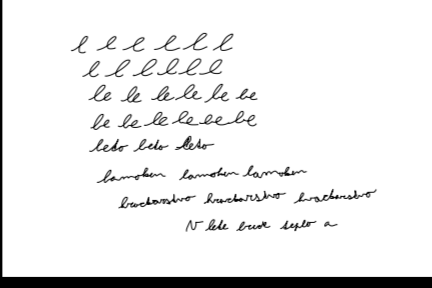 l l l l l l l
l l l l l l
le le le le le be
be be le le be be
leto leto leto
lamohen lamohen lamohen
hrackarstvo hrackarstvo hrackarstvo
V lete bude teplo a